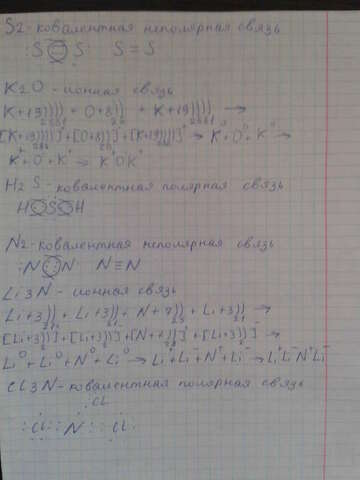 S2-ковалентная неполярная связь
:S::S: S=S
K2O-ионная связь
K+19)))) + O+8)) + K+19)))) →
2881 26 2881
[K+19))))]⁺+[O+8))]⁻+[K+19))))]⁺→ K⁺O⁰K⁺→
K⁺+O⁻+K⁺→ K⁺OK⁺
H2S-ковалентная полярная связь
H:S:H
N2-ковалентная неполярная связь
:N:::N: N≡N
Li3N-ионная связь
Li+3)) + Li+3)) + N+7)) + Li+3)) →
[Li+3))]⁺+[Li+3))]⁺+[N+7))]⁺+[Li+3))]⁻
Li⁰+Li⁰+N⁰+Li⁰→Li⁺+Li⁻+N⁺+Li⁻→Li⁺Li⁻N⁺Li⁻
CL3N-ковалентная полярная связь
:CL:
:CL:N:CL: